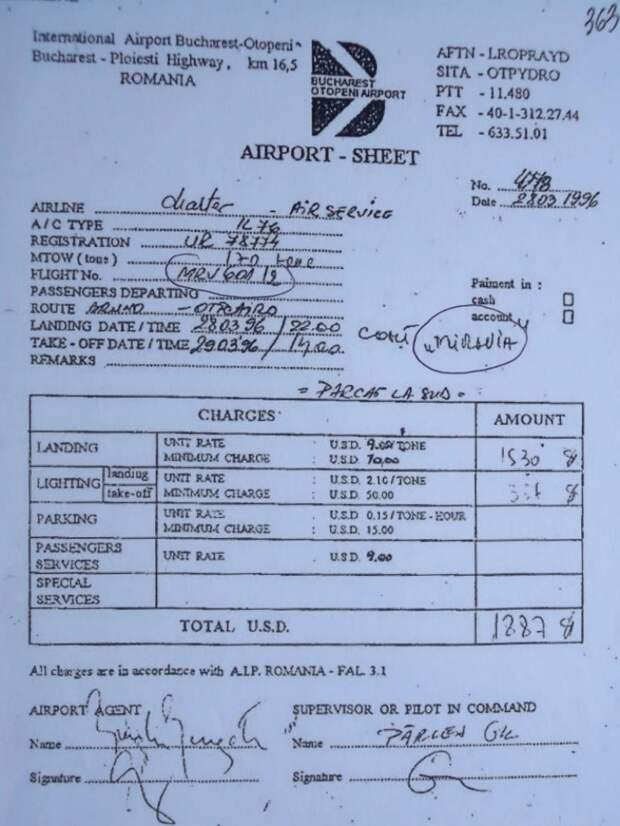 363
International Airport Bucharest-Otopeni
Bucharest - Ploiesti Highway, km 16,5
ROMANIA
BUCHAREST
OTOPENI AIRPORT
AFTN - LROPRAYD
SITA - OTPYDRO
PTT - 11.480
FAX - 40-1-312.27.44
TEL - 633.51.01
AIRPORT - SHEET
No.
Date 28.03 1996
AIRLINE Charter - AIR SERVICE
A/C TYPE IL 76
REGISTRATION UR 78774
MTOW (tons) 170 tone
FLIGHT No. MRV 601/2
PASSENGERS DEPARTING
ROUTE
LANDING DATE/TIME 28.03.96 / 22.00
TAKE-OFF DATE/TIME 29.03.96 / 14.00
REMARKS
Paiment in :
cash
account
CONT "MIRAVIA
= PARCAT LA SUD =
CHARGES AMOUNT
LANDING UNIT RATE : U.S.D. 9.00/TONE
MINIMUM CHARGE : U.S.D. 70,00
1530 $
LIGHTING landing UNIT RATE : U.S.D. 2.10/TONE
take-off MINIMUM CHARGE : U.S.D. 50.00
$
PARKING UNIT RATE : U.S.D. 0.15/TONE-HOUR
MINIMUM CHARGE : U.S.D. 15.00
PASSENGERS
SERVICES UNIT RATE : U.S.D. 9.00
SPECIAL
SERVICES
TOTAL U.S.D. 1887 $
All charges are in accordance with A.I.P. ROMANIA - FAL 3.1
AIRPORT AGENT SUPERVISOR OR PILOT IN COMMAND
Name Name
Signature Signature